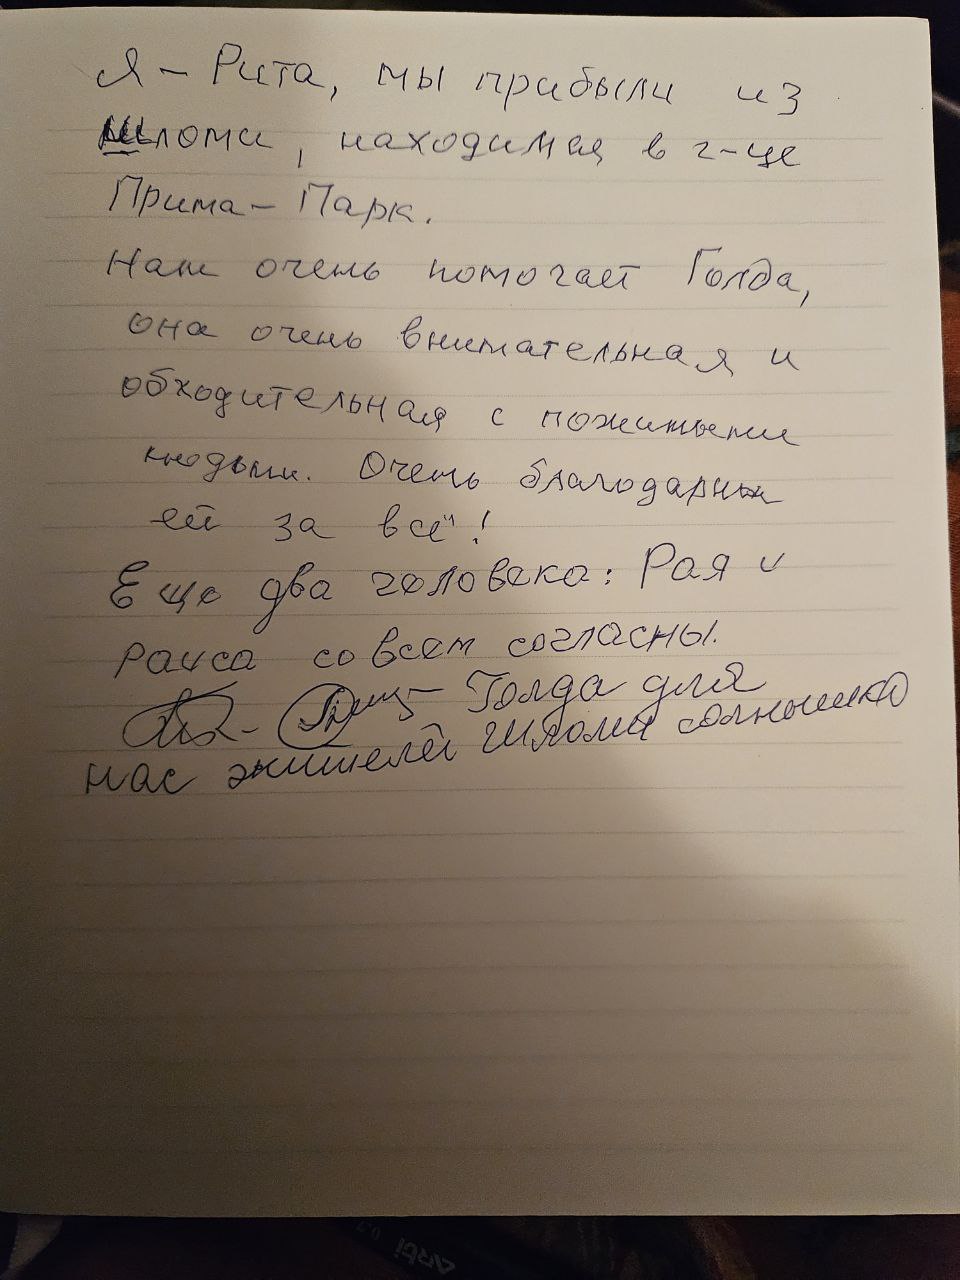 Я - Рита, мы прибыли из
Шломи, находимся в г-це
Прима - Парк.
Нам очень помогает Голда,
она очень внимательная и
обходительная с пожилыми
людьми. Очень благодарны
ей за всё!
Еще два человека: Рая и
Раиса со всем согласны.
- Голда для
нас жителей Шломи солнышко
arti